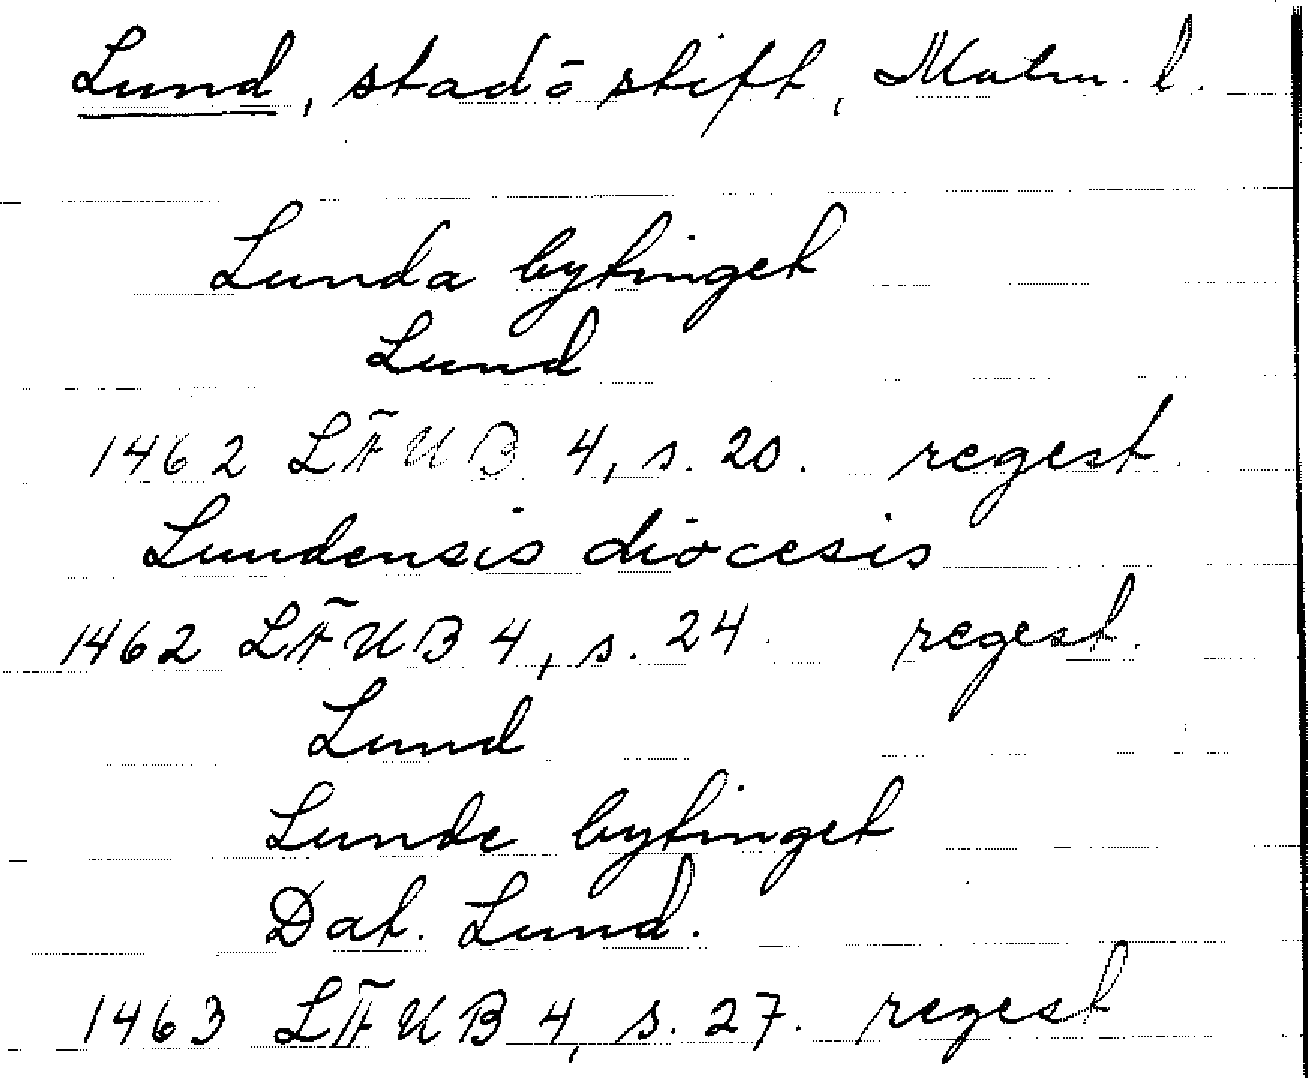 Lund, stad o stift, Malm. l.
Lunda bytinget
Lund
1462 LÄUB 4, s. 20. regest.
Lundensis diocesis
1462 LÄUB 4, s. 24. regest.
Lund
Lunde bytinget
Dat. Lund.
1463 LÄUB 4, s. 27. regest